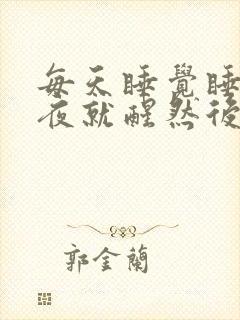 每天睡覺睡
夜就醒然後
郭金蘭